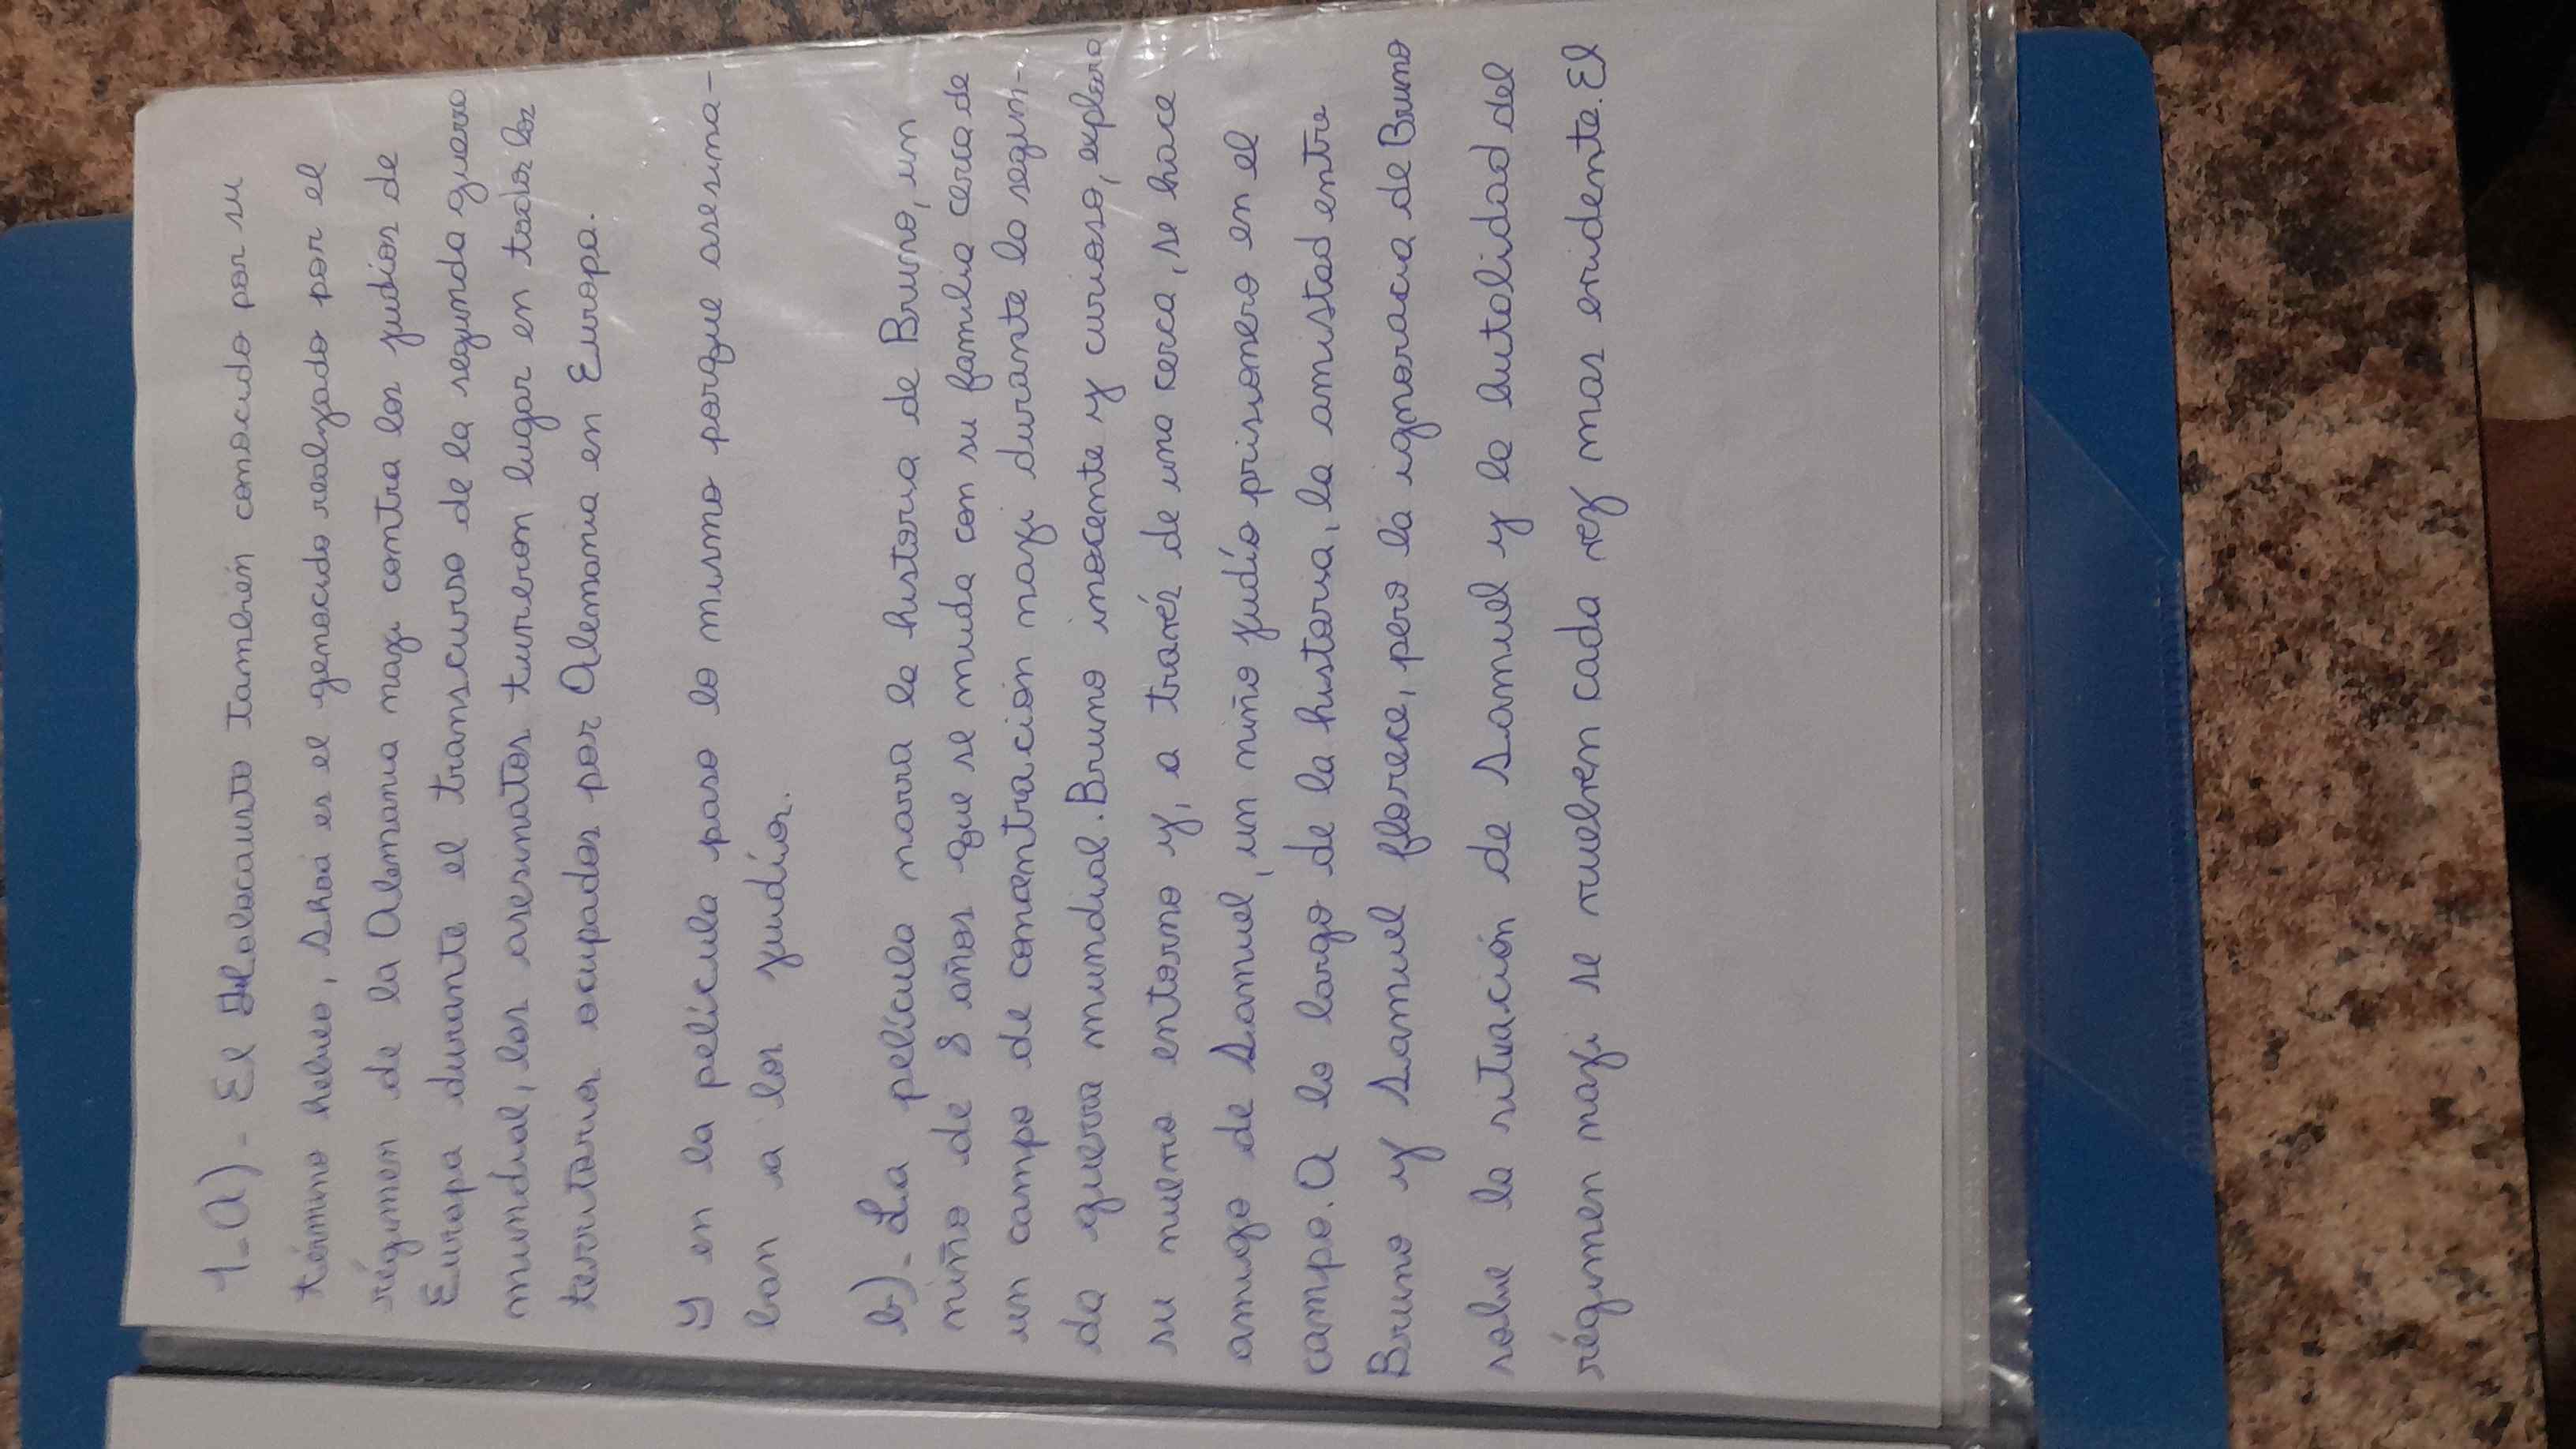 1-a)- El Holocausto también conocido por su
término hebreo, Shoá es el genocidio realizado por el
régimen de la Alemania nazi contra los judíos de
Europa durante el transcurso de la segunda guerra
mundial, los asesinatos tuvieron lugar en todos los
territorios ocupados por Alemania en Europa.
Y en la película paso lo mismo porque asesina-
ban a los judíos.
b)- La película narra la historia de Bruno, un
niño de 8 años que se muda con su familia cerca de
un campo de concentración nazi durante la segun-
da guerra mundial. Bruno inocente y curioso, explora
su nuevo entorno y, a través de una cerca, se hace
amigo de Samuel, un niño judío prisionero en el
campo. A lo largo de la historia, la amistad entre
Bruno y Samuel florece, pero la ignoracia de Bruno
sobre la situación de Samuel y la brutalidad del
régimen nazi se vuelven cada vez mas evidente. El